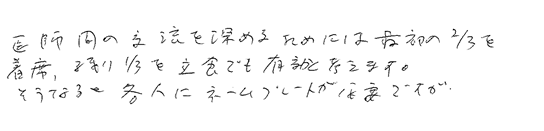 医師間の交流を深めるためには最初の2/3を
着席、残り1/3を立食でも有効と考えます。
そうなると各人にネームプレートが必要ですが、